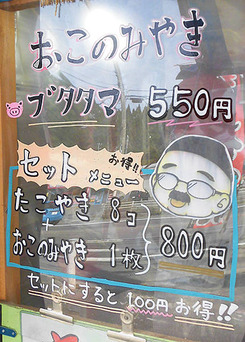 おこのみやき
ブタタマ 550円
お得!!
セットメニュー
たこやき 8コ
+
おこのみやき 1枚
800円
セットにすると100円お得!!